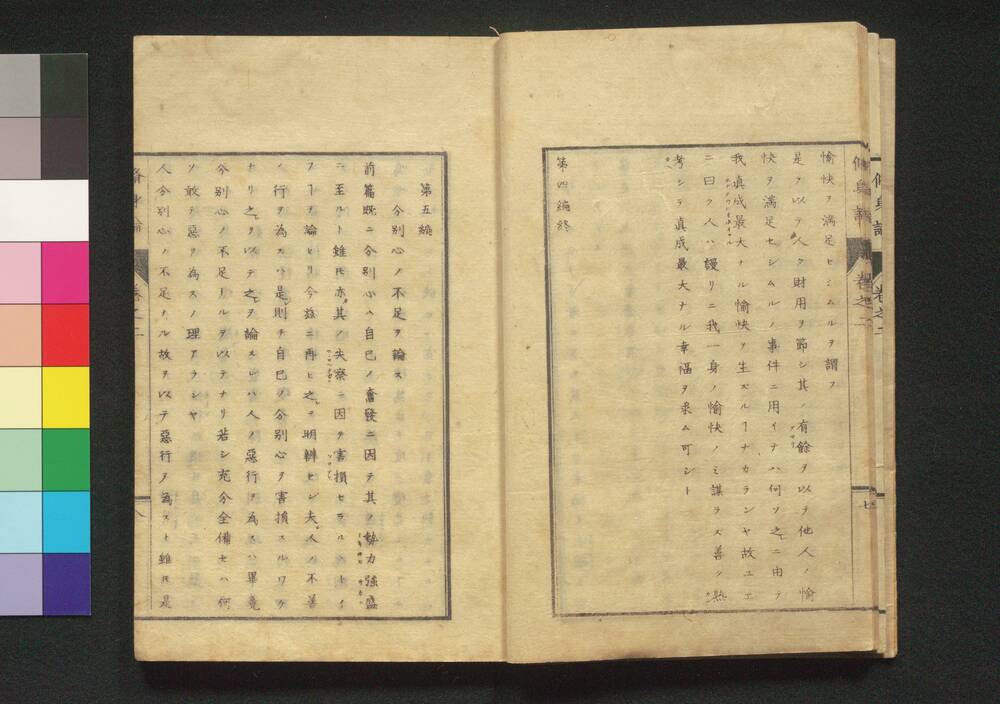 脩身論 卷之二
愉快ヲ滿足セシムルヲ謂フ
是ヲ以テ人ク財用ヲ節シ其ノ有餘ヲ以テ他人ノ愉
快ヲ滿足セシムルノ事件ニ用イナハ何ソ之ニ由テ
我真成最大ナル愉快ヲ生スルヿナカランヤ故エニエ
ニ曰ク人ハ謾リニ我一身ノ愉快ノミ謀ラス善ク熟
考シテ真成最大ナル幸福ヲ求ム可シト
第四編終
七
第五編
分別心ノ不足ヲ論ス
前篇既ニ分別心ハ自已ノ奮發ニ因テ其ノ勢力強盛
ニ至ルト雖𪜈亦其ノ失察ニ因テ害損セラルヽトイ
フヿヲ論セリ今茲ニ再ヒ之ヲ明辨セン夫人ノ不善
ノ行ヲ為スハ是則チ自已ノ分別心ヲ害損スルワケ
ナリ之ヲ以テ之ヲ論スレハ人ノ惡行ヲ為スハ畢竟
分別心ノ不足ナルヲ以テナリ若シ充分全備セハ何
ソ敢テ惡ヲ為スノ理アランヤ
人分別心ノ不足ナル故ヲ以テ惡行ヲ為スト雖𪜈是
脩身論 卷之二
八